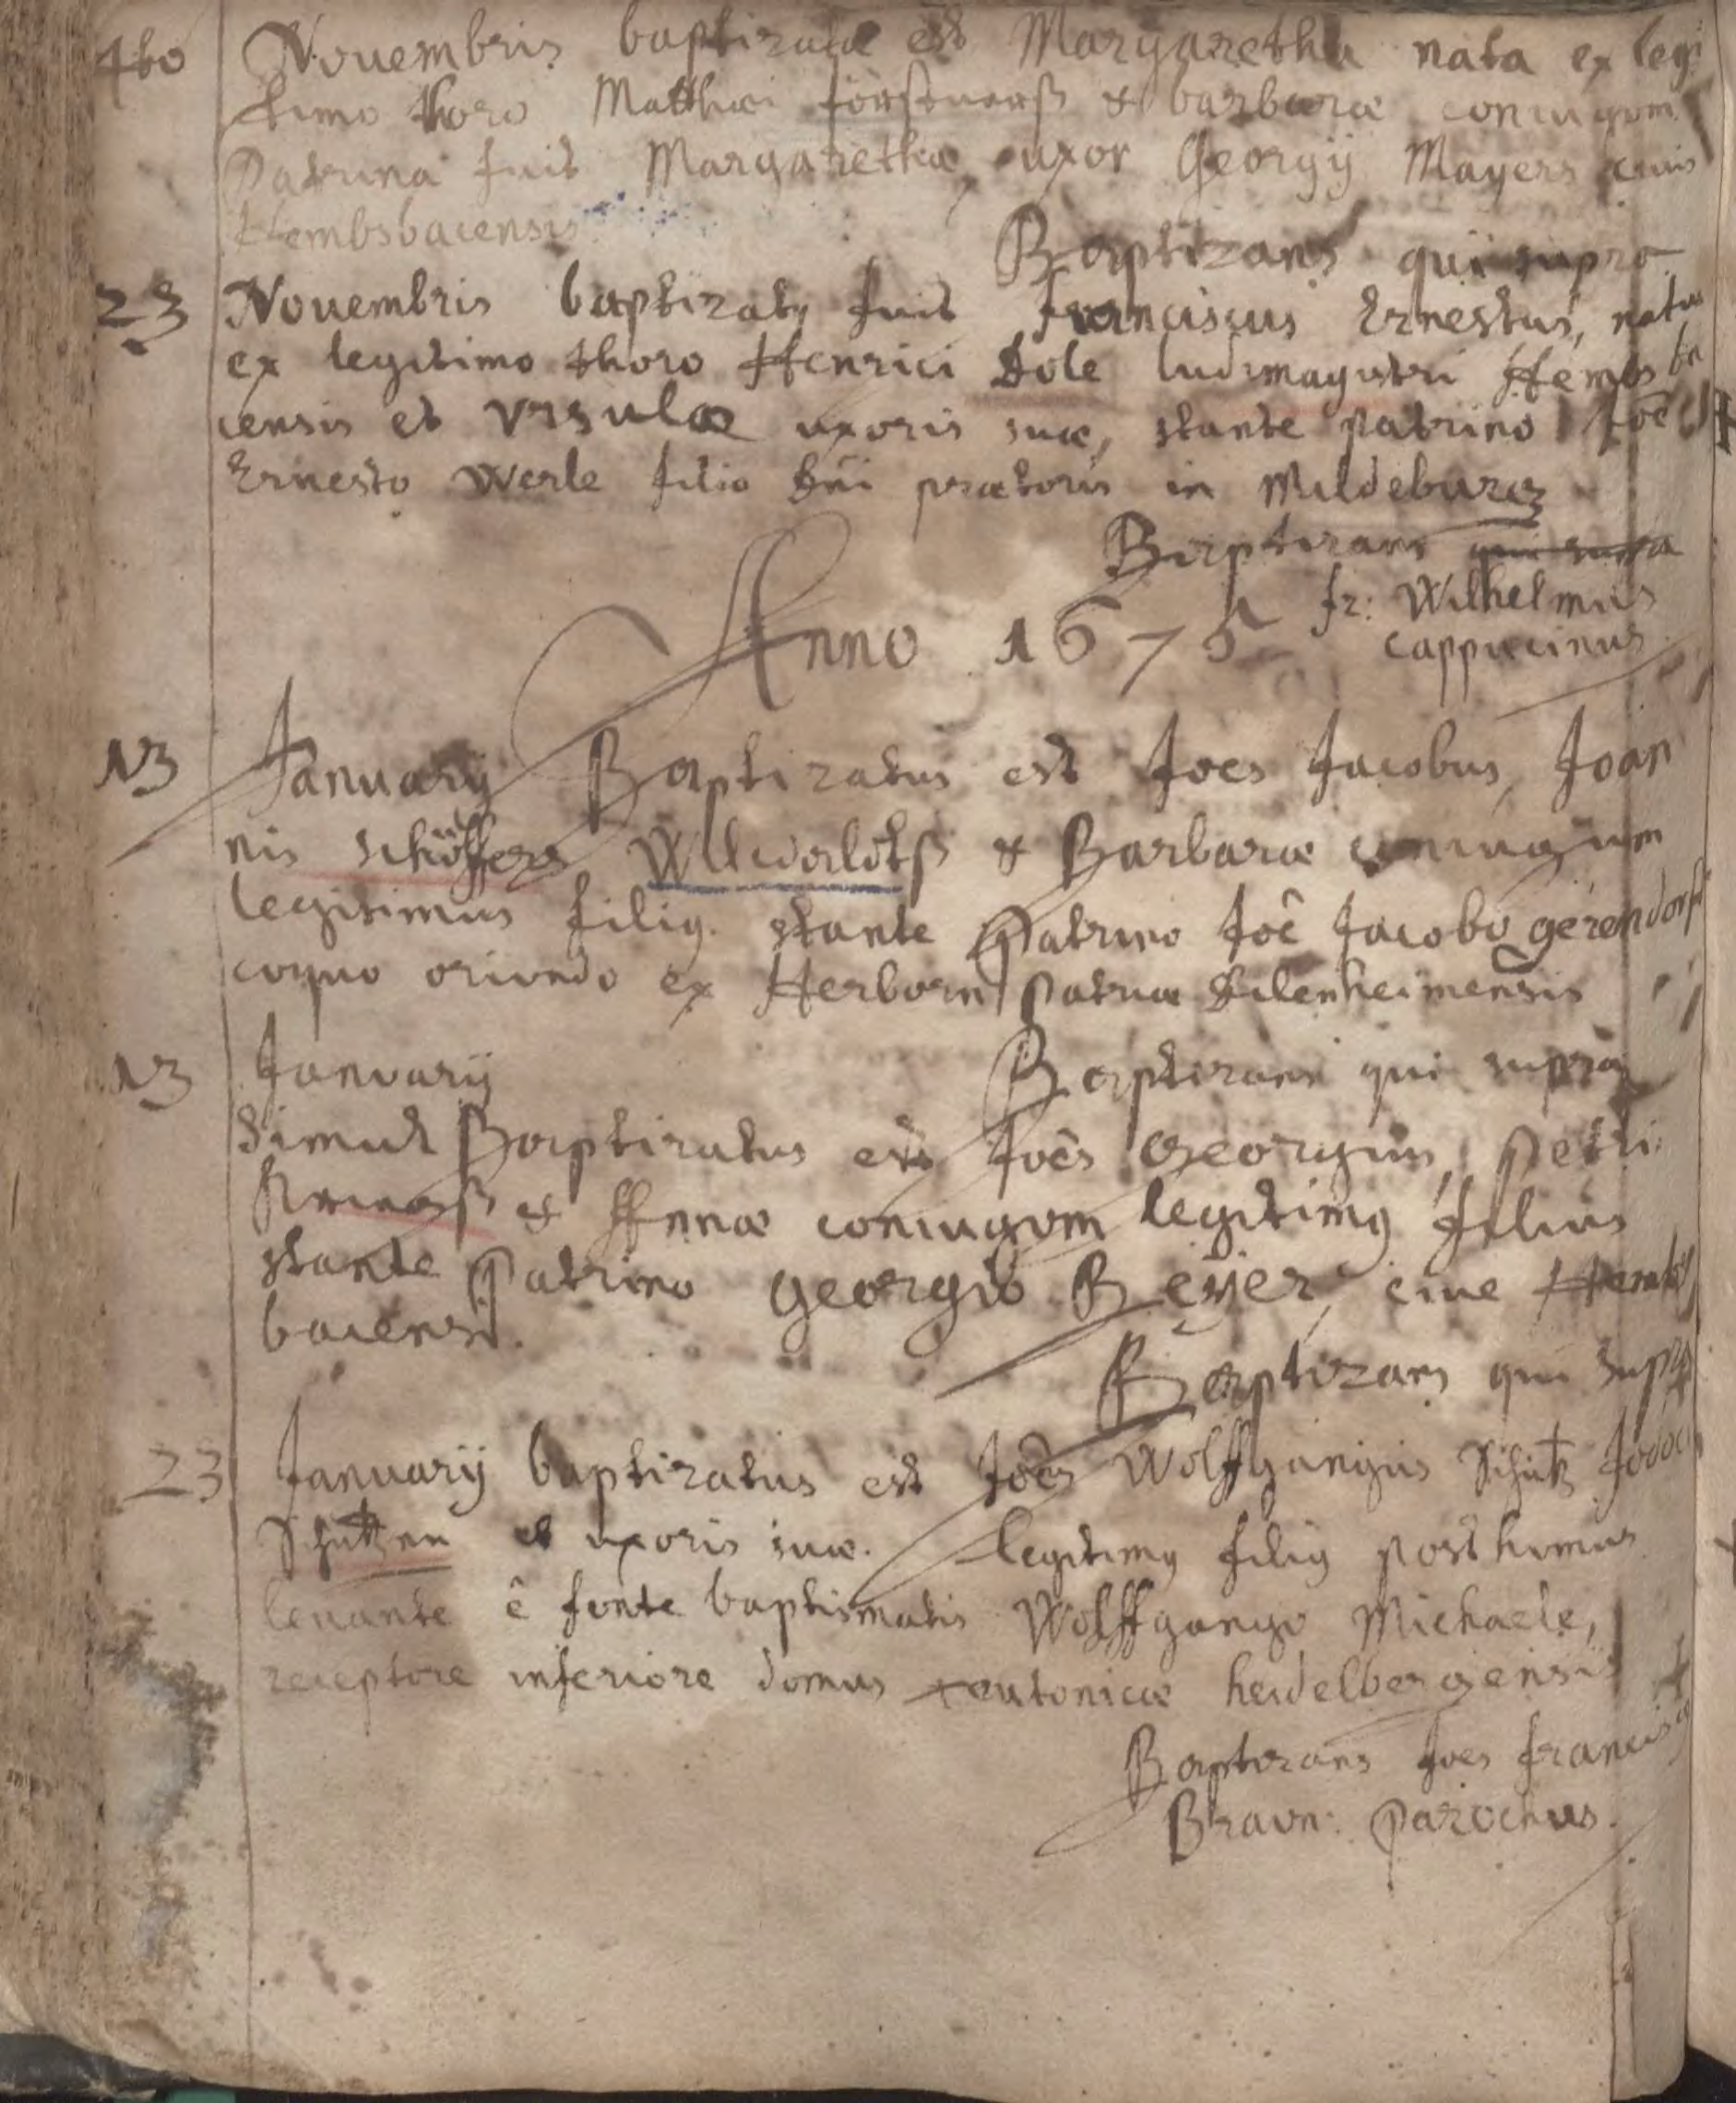 4to Novembris baptizata est Margaretha nata ex legi
timo thoro Matthæi förstnerß & barbaræ coniugum
Patrina fuit Margaretha uxor Georgÿ Mayers civis
Hembsbacensis.
Baptizans qui supra
23 Novembris baptizatus fuit Franciscus Ernestus, natus
ex legitimo thoro Henrici Dole ludimagistri Hembsba
censis et Vrsulæ uxoris suæ, stante patrino Joê
Ernesto Werle filio Dñi prætoris in Mildeburg
Baptizans qui supra
fr: Wilhelmus
Anno 1675 cappucinus
13 Januarÿ Baptizatus est Joes Jacobus, Joan
nis schöffers & Barbaræ coniugum
legitimus filiq. stante Patrino Joê Jacobo gerendorff
coquo oriundo ex Herborn patriæ Dilenheimensis
13 Januarÿ Baptizans qui supra
Simul Baptizatus est Joês Georgius, Petri
& Annæ coniugum legitimq filius
stante Patrino georgio Beÿer, cive Hembs
bacensi.
Baptizans qui supra
23 Januarÿ baptizatus est Joês Wolffgangus Schütz Jodoci
Schützen et uxoris suæ. legitimq filiq posthumus
levante ê fonte baptismatis Wolffgango Michaele,
receptore inferiore domus teutonicæ heidelbergensis
Baptizans Joes francisq
Braun: Parochus.